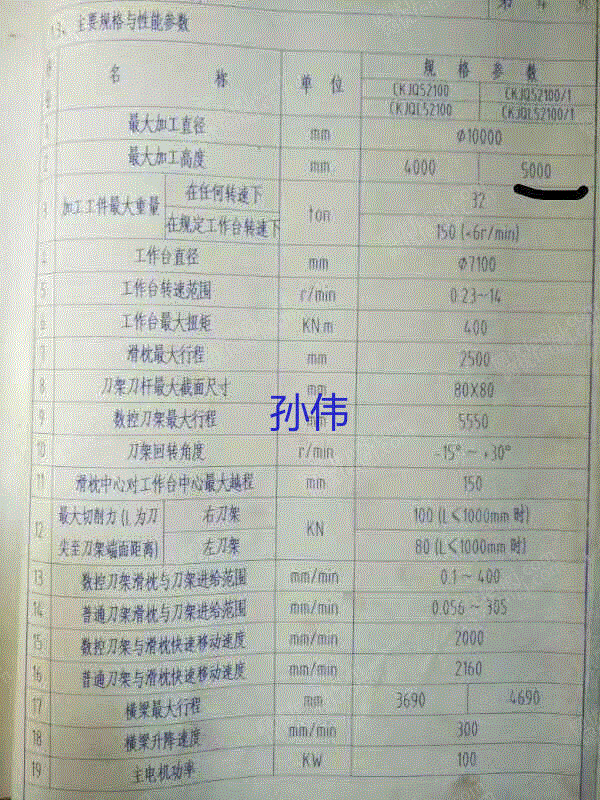 第 4 页
1.3、主要规格与性能参数
序号 名 称 单 位 规 格 参 数
CKJQ52100 CKJQ52100/1
CKJQL52100 CKJQL52100/1
1 最大加工直径 mm φ10000
2 最大加工高度 mm 4000 5000
3 加工工件最大重量 在任何转速下 ton 32
在规定工作台转速下 150 (<6r/min)
4 工作台直径 mm φ7100
5 工作台转速范围 r/min 0.23~14
6 工作台最大扭矩 KN.m 400
7 滑枕最大行程 mm 2500
8 刀架刀杆最大截面尺寸 mm 80X80
9 数控刀架最大行程 5550
孙伟
10 刀架回转角度 r/min -15° ~ +30°
11 滑枕中心对工作台中心最大越程 mm 150
12 最大切削力 (L 为刀尖至刀架端面距离) 右刀架 KN 100 (L≤1000mm 时)
左刀架 80 (L≤1000mm 时)
13 数控刀架滑枕与刀架进给范围 mm/min 0.1 ~ 400
14 普通刀架滑枕与刀架进给范围 mm/min 0.056 ~ 305
15 数控刀架与滑枕快速移动速度 mm/min 2000
16 普通刀架与滑枕快速移动速度 mm/min 2160
17 横梁最大行程 mm 3690 4690
18 横梁升降速度 mm/min 300
19 主电机功率 KW 100